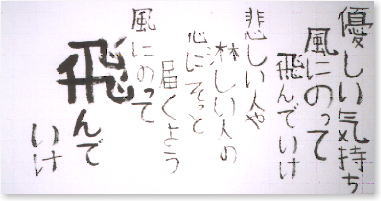 優しい気持ち
風にのって
飛んでいけ
悲しい人や
淋しい人の
心にそっと
届くよう
風にのって
飛んで
いけ